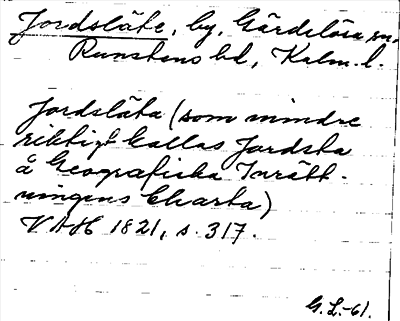 Jordsläte, by, Gärdslösa sn,
Runstens hd, Kalm. l.
Jordsläta (som mindre
riktigt kallas Jordsta
å Geografiska Inrätt-
ningens Charta)
VAH 1821, s. 317.
G. L. -61.